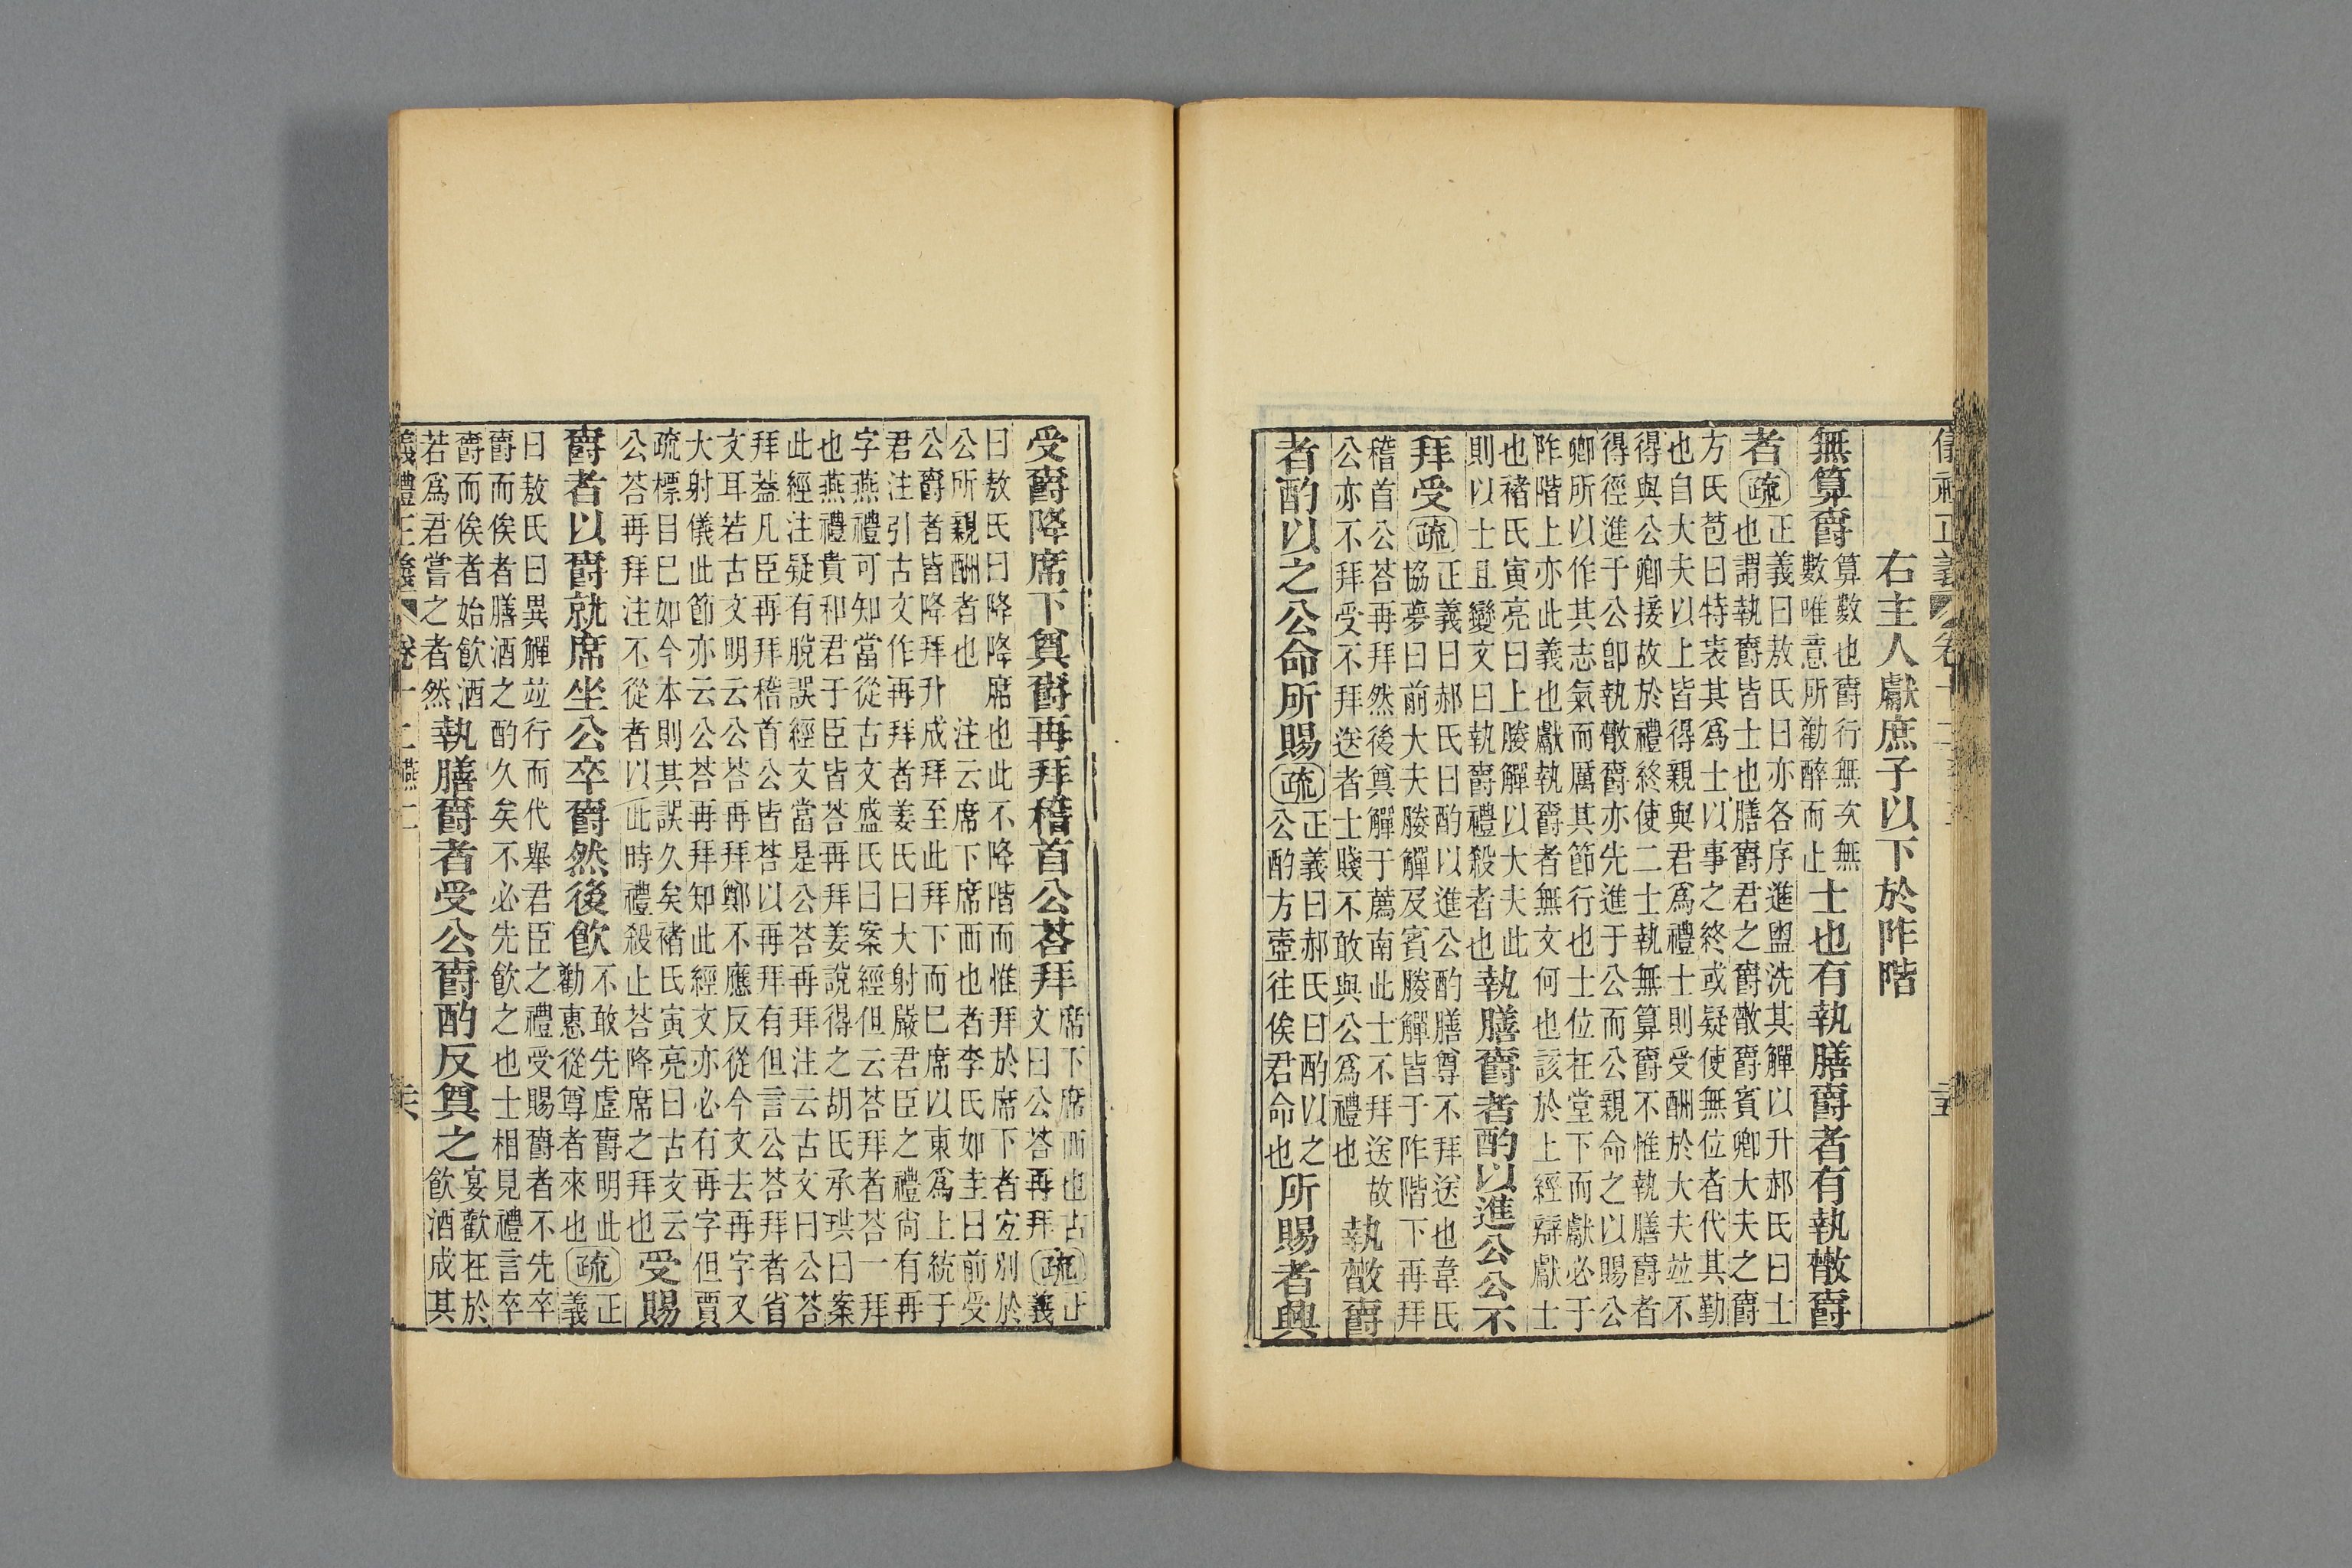 右主人獻庶子以下於阼階
無算爵
算數也爵行無次無
數唯意所勸醉而止
士也有執膳爵者有執散爵
者疏
正義曰敖氏曰亦各序進盥洗其觶以升郝氏曰士
也謂執爵皆士也膳爵君之爵散爵賓卿大夫之爵
方氏苞曰特裝其爲士以事之終或疑使無位者代其勤
也自大夫以上皆得親與君爲禮士則受酬於大夫竝不
得與公卿接故於禮終使二士執無算爵不惟執膳爵者
得徑進于公卽執散爵亦先進于公而公親命之以賜公
卿所以作其志氣而厲其節行也士位在堂下而獻必于
阼階上亦此義也獻執爵者無文何也該於上經辯獻士
也褚氏寅亮曰上媵觶以大夫此
則以士且變文曰執爵禮殺者也
執膳爵者酌以進公公不
拜受疏
正義曰郝氏曰酌以進公酌膳尊不拜送也韋氏
協夢曰前大夫媵觶及賓媵觶皆于阼階下再拜
稽首公荅再拜然後奠觶于薦南此士不拜送故
公亦不拜受不拜送者士賤不敢與公爲禮也
執散爵
者酌以之公命所賜疏
正義曰郝氏曰酌以之
公酌方壺往俟君命也
所賜者興
受爵降席下奠爵再拜稽首公荅拜
席下席西也古
文曰公荅再拜
疏
正
義
曰敖氏曰降降席也此不降階而惟拜於席下者宜別於
公所親酬者也　注云席下席西也者李氏如圭曰前受
公爵者皆降拜升成拜至此拜下而已席以東爲上統于
君注引古文作再拜者姜氏曰大射嚴君臣之禮尙有再
字燕禮可知當從古文盛氏曰案經但云荅拜者荅一拜
也燕禮貴和君于臣皆荅再拜姜說得之胡氏承珙曰案
此經注疑有脫誤經文當是公荅再拜注云古文曰公荅
拜蓋凡臣再拜稽首公皆荅以再拜有但言公荅拜者省
文耳若古文明云公荅再拜鄭不應反從今文去再字又
大射儀此節亦云公荅再拜知此經文亦必有再字但賈
疏標目已如今本則其誤久矣褚氏寅亮曰古文云
公荅再拜注不從者以此時禮殺止荅降席之拜也
受賜
爵者以爵就席坐公卒爵然後飮
不敢先虛爵明此
勸惠從尊者來也
疏
正
義
曰敖氏曰異觶竝行而代舉君臣之禮受賜爵者不先卒
爵而俟者膳酒之酌久矣不必先飮之也士相見禮言卒
爵而俟者始飮酒
若爲君嘗之者然
執膳爵者受公爵酌反奠之
宴歡在於
飮酒成其